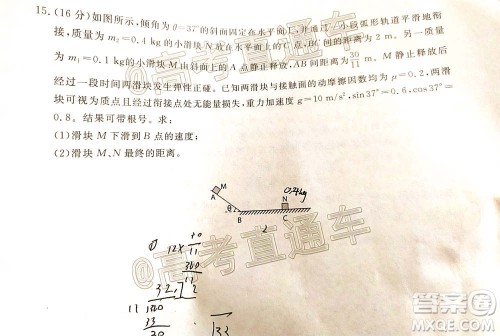 15.(16分)如图所示,倾角为θ=37°的斜面固定在水平面上,并通过一小段弧形轨道平滑地衔
接,质量为m₂=0.4 kg的小滑块N放在水平面上的C点,BC间的距离为2 m。另一质量
为m₁=0.1 kg的小滑块M由斜面上的A点静止释放,AB间距离为30/11 m,M静止释放后
经过一段时间两滑块发生弹性正碰。两滑块与接触面的动摩擦因数均为μ=0.2,两滑
块可视为质点且经过衔接点处无能量损失,重力加速度g=10 m/s²,sin37°=0.6,cos37°=
0.8。结果可带根号。求:
(1)滑块M下滑到B点的速度;
(2)滑块M、N最终的距离。
M
A
θ
B
N
C
0.4kg
2
@高考直通车
@高考直通车
@高考直通车
12×
11
360
11
32.7
11
33
答案圈
MXQE.COM